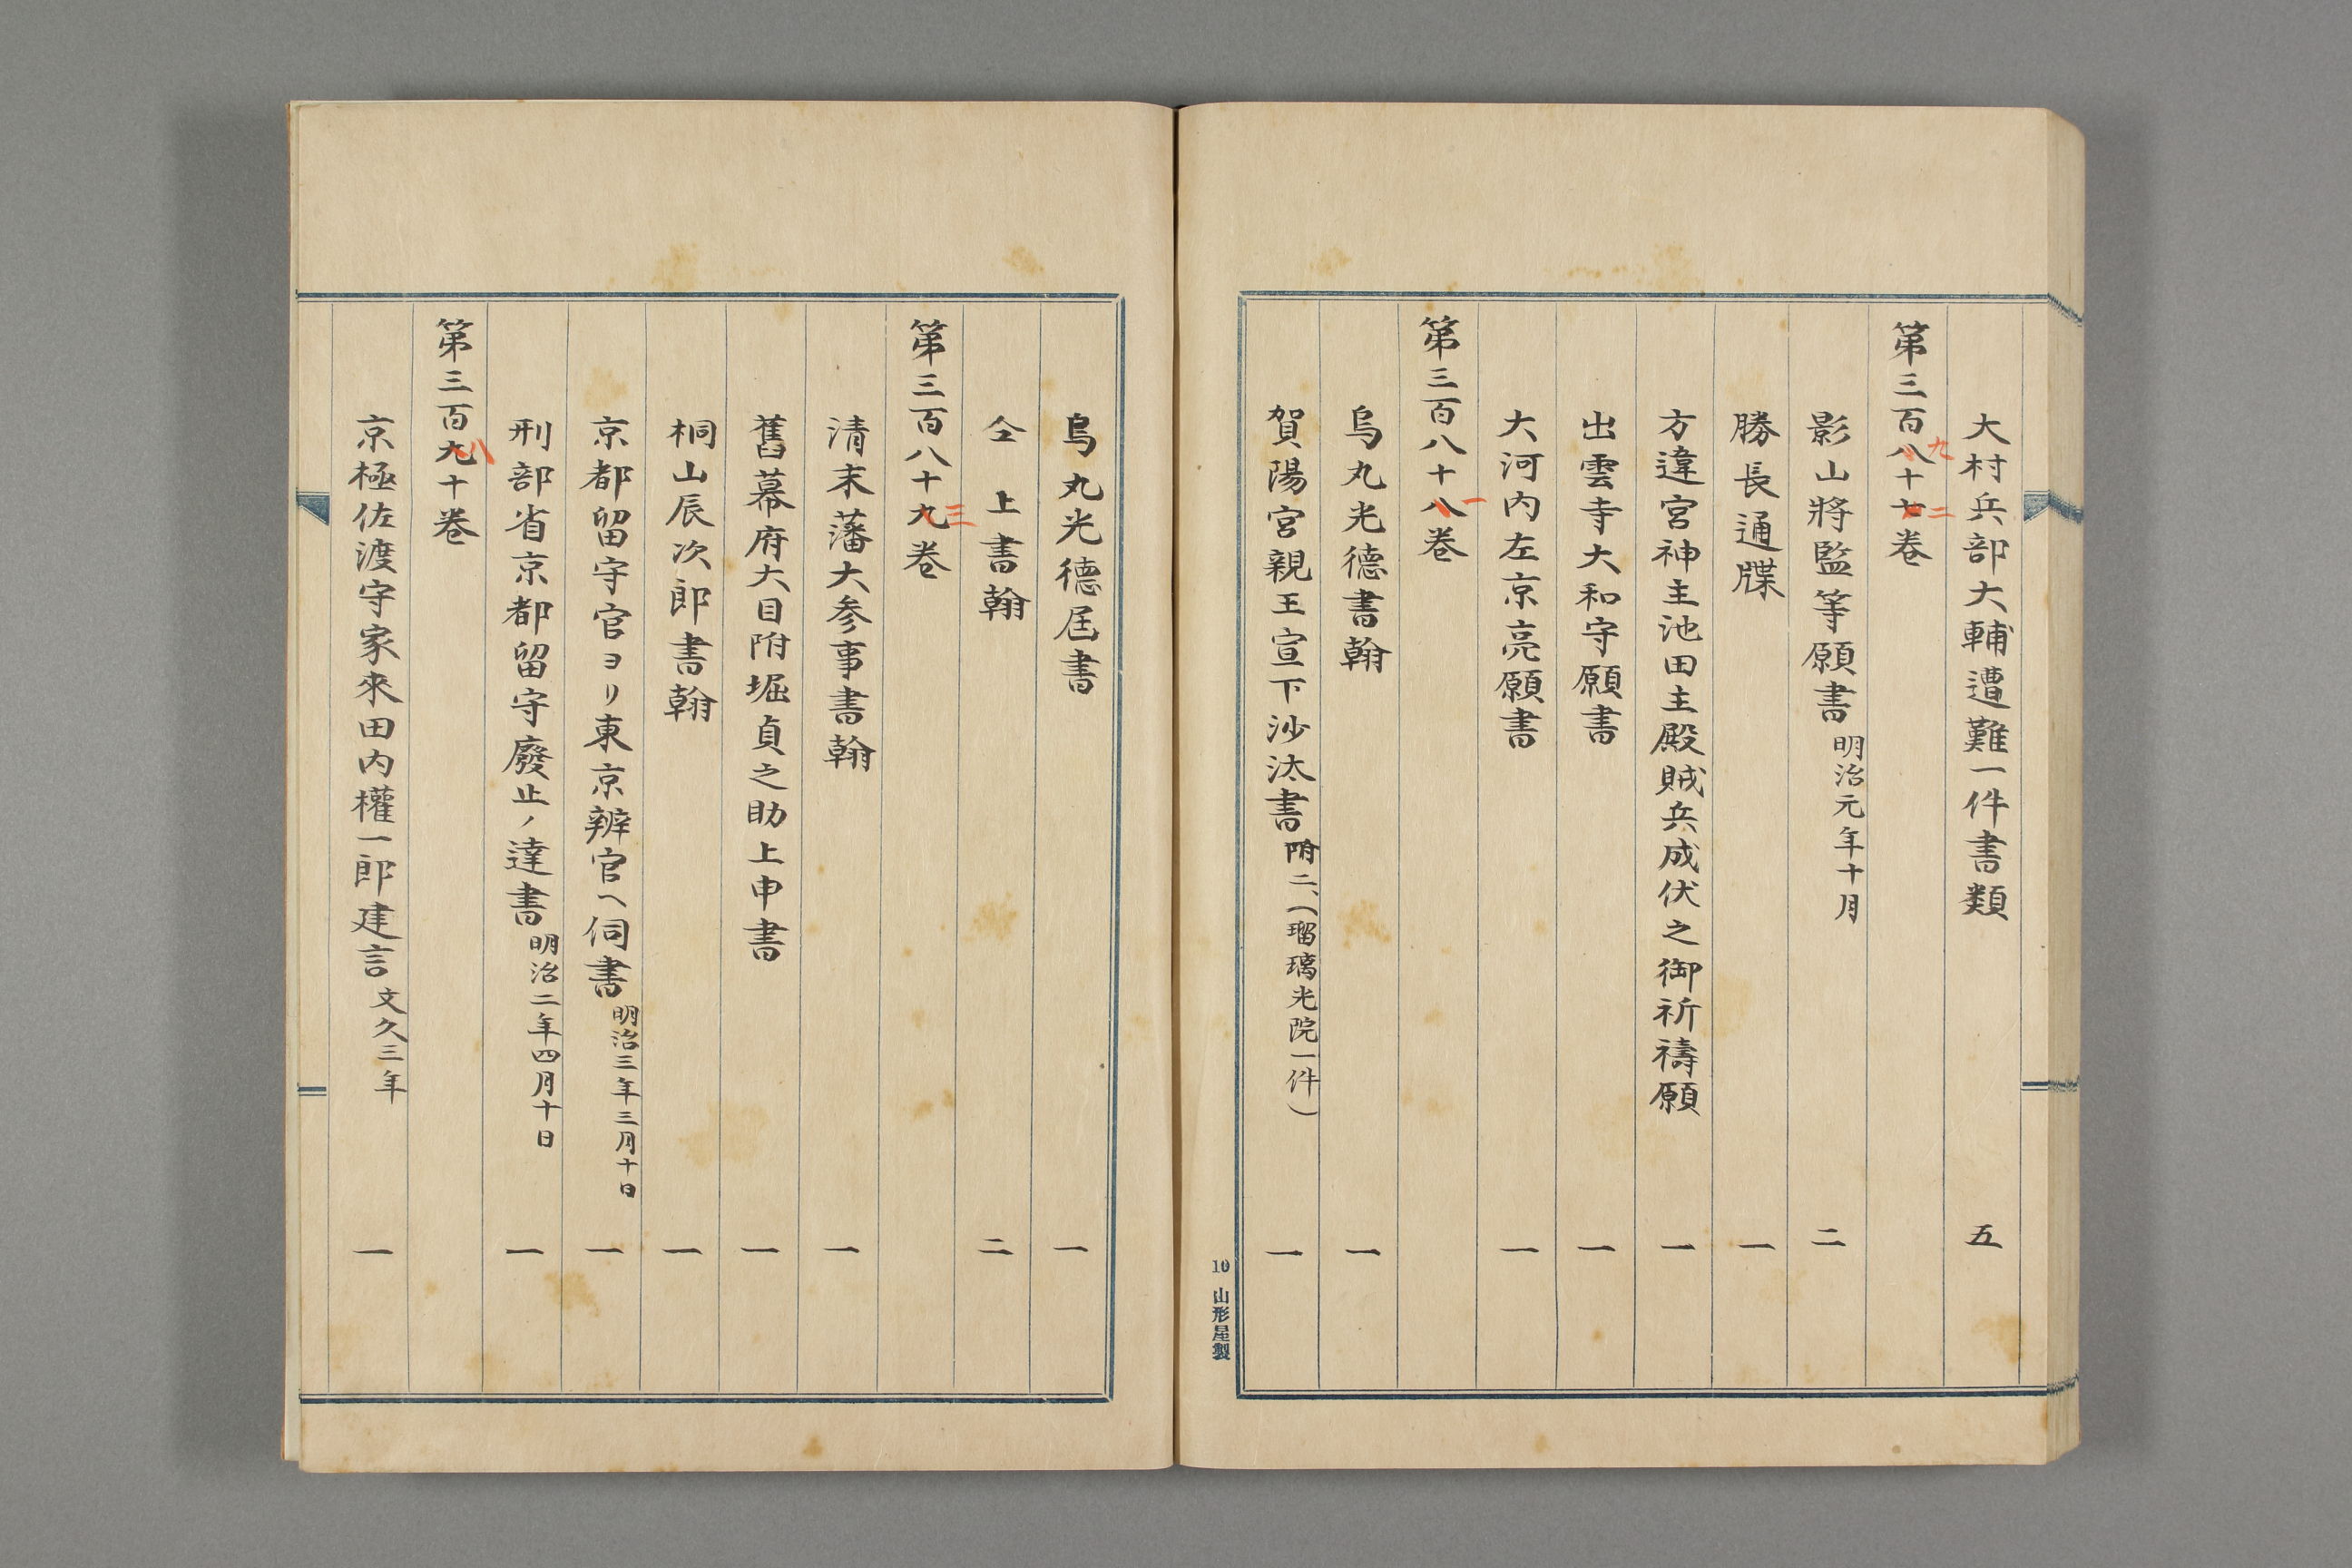 大村兵部大輔遭難一件書類 五
第三百八十七巻 九 二
影山將監等願書 明治元年十月 二
勝長通牒 一
方違宮神主池田主殿賊兵成伏之御祈禱願 一
出雲寺大和守願書 一
大河内左京亮願書 一
第三百八十八巻 一
烏丸光德書翰 一
賀陽宮親王宣下沙汰書 附二、(瑠璃光院一件) 一
10 山形屋製
烏丸光德届書 一
仝上書翰 二
第三百八十九巻 三
清末藩大参事書翰 一
舊幕府大目附堀貞之助上申書 一
桐山辰次郎書翰 一
京都留守官ヨリ東京辨官ヘ伺書 明治三年三月十日 一
刑部省京都留守廢止ノ達書 明治二年四月十日 一
第三百九十巻 八
京極佐渡守家來田内權一郎建言 文久三年 一